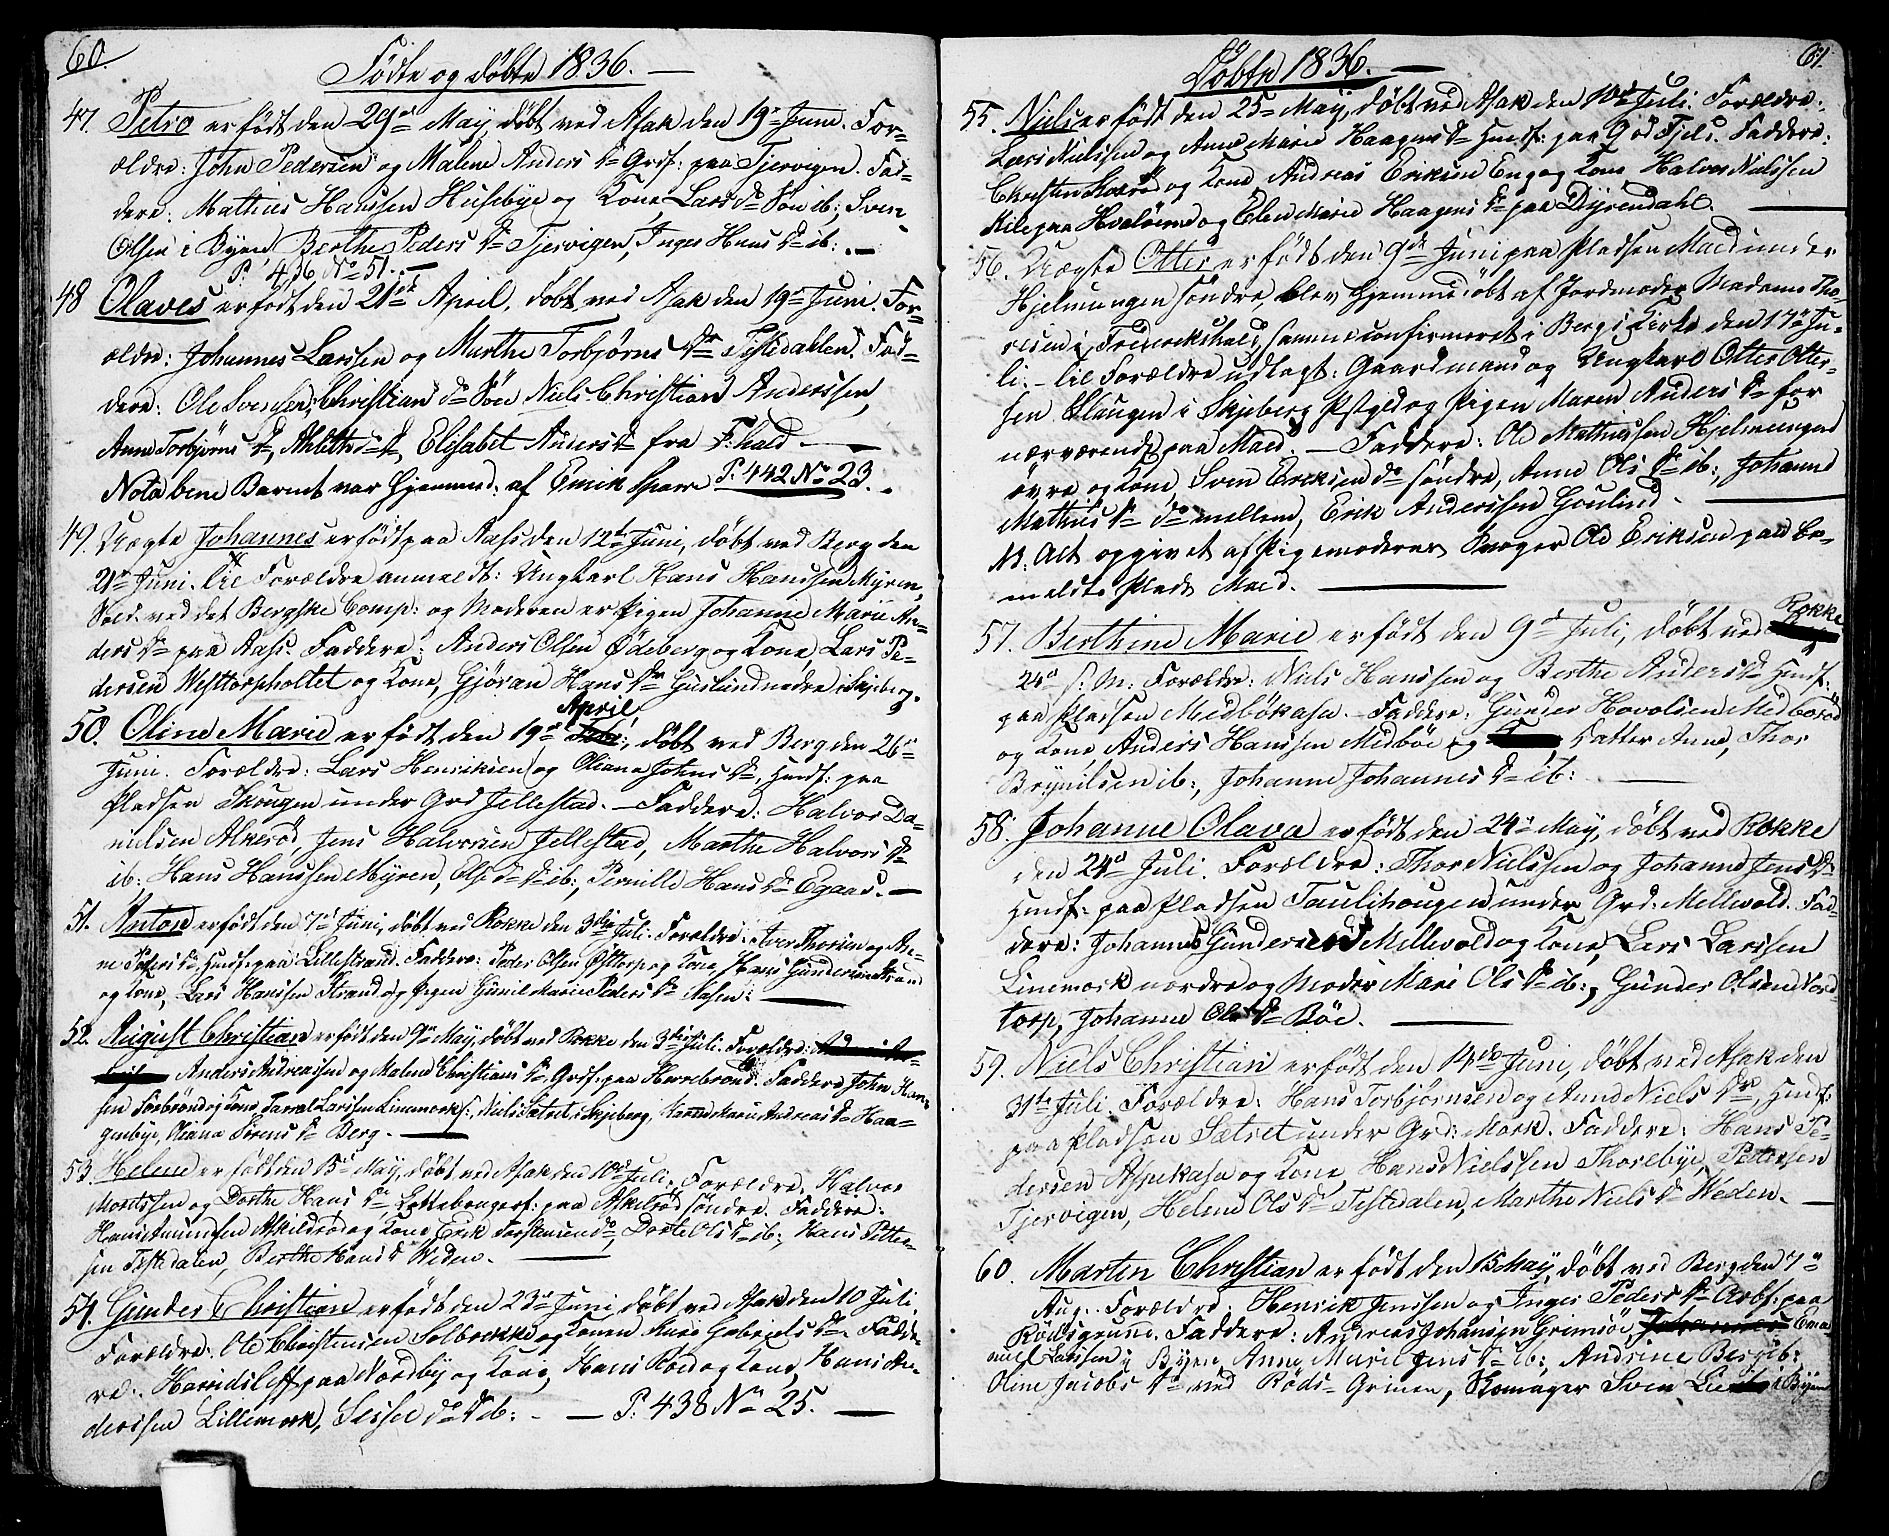 60.
Fødte og døbte 1836. —
47. Petro er født den 29de May, døbt ved Asak den 19de Juni. For-
ældre: John Pedersen og Malene Anders Dr Grdf: paa Tjervigen. Fad-
dere: Mathias Hanssen Husebye og Kone Lars Dr Søn ib: Sven
Olsen i Byen, Berthe Peders Dr Tjervigen, Inger Hans Dr ib: —
P. 436 No 51. —
48 Olaves er født den 21de April, døbt ved Asak den 19de Juni. For-
ældre: Johannes Larssen og Marthe Torbjørns Dr Tistedahlen. Fad-
dere: Ole Svensen, Christian Niels Christian Anderssen,
Anne Torbjørns Dr, Elisabet Anders Dr fra F:hald —
Nota bene Barnet var Hjemmed: af Emik Sparre P. 442 No 23.
49. Uægte Johannes er født paa Aas den 12te Juni, døbt ved Berg den
21de Juni. til Forældre anmeldt: Ungkarl Hans Hanssen Myren,
Sold. ved det Bergske Comp: og Moderen er Pigen Johanne Marie An-
ders Dr paa Aas. Faddere: Anders Olsen Ødeberg og Kone, Lars Pe-
dersen Westtorpholtet og Kone, Gjøran Hans Dr Guslund nedre i Skjeberg.
April
50. Oline Marie er født den 19de Febr:, døbt ved Berg den 26de
Juni. Forældre: Lars Henriksen og Oliana Johns Dr, Husf: paa
Pladsen Skougen under Grd Jellestad. — Faddere: Halvor Da-
nielsen Alkerød, Jens Halvorsen Jellestad, Marthe Halvors Dr
ib: Hans Hanssen Myren, Else Dr ib:, Pernille Hans Dr Egaas. —
51. Anton er født den 7de Juni, døbt ved Rokke den 3die Juli. Forældre: Iver Thorsen og An-
ne Peders Dr Husf: paa Lillestrand. Faddere: Peder Olsen Østtorp og Kone, Hans Gundersen Strand
og Kone, Lars Hanssen Strand og Pigen Gunil Marie Peders Dr Aasen: —
52. August Christian er født den 9de May, døbt ved Rokke den 3die Juli. Forældre:
Anders Andreassen og Malene Christians Dr Grdf: paa Herrebrønd. Faddere John Hans-
sen Torbrønd og Kone, Larssen Linemork, Niels Sætret i Skjeberg, Anne Marie Andreas Dr Haa-
genbye, Oliana Sørens Dr Berg. —
53. Helene er født den 15de May, døbt ved Asak den 10de Juli. Forældre. Halvor
Mortssen og Dorthe Hans Dr, paa Askelrød søndre. Faddere:
Hans Amundsen Askildrød og Kone, Erik Torstensen do, Dorte Ols Dr ib:, Hans Petter-
sen Tistedalen, Berthe Hans Dr Weden. —
54. Gunder Christian er født den 23de Juni, døbt ved Asak den 10 Juli.
Forældre: Ole Christensen Solbrekke og Konen Anne Gabriels Dr. Fadde-
re. Haridsleff paa Nordby og Kone, Hans Rød og Kone, Hans An-
derssen Lillemork, Sessel do ib: — P. 438 No 25. —
61.
Døbte 1836. —
55. Niels er født den 25de May, døbt ved Asak den 10de Juli. Forældre:
Lars Nielssen og Anne Marie Haagens Dr Husf: paa Qvod Fjeld. Faddere:
Christen og Kone, Andreas Eriksen Eng og Kone Halvor Nielssen
Kile paa Hvaløerne og Elen Marie Haagens Dr paa Dyrendahl. —
56. Uægte Otter er født den 9de Juni paa Pladsen Maed under
Hjelmungen søndre, blev hjemmedøbt af Jordmoder Madame Tho-
resen i Frederikshald, samme confirmeret i Bergs Kirke den 17de Ju-
li. — til Forældre udlagt: Gaardmand og Ungkarl Otter Otter-
sen Klaugen i Skjeberg Pstgd og Pigen Maren Anders Dr for
nærværende paa Maed. — Faddere: Ole Mathiessen Hjelmungen
øvre og Kone, Sven Eriksen do søndre, Anne Ols Dr ib:, Johanne
Mathias Dr do mellem, Erik Anderssen Goulund. —
N. Alt opgivet af Pigemoderens Svoger Ole Eriksen paa be-
meldte Plads Maed. —
Rokke
57. Berthine Marie er født den 9de Juli, døbt ved
24de s. M: Forældre: Niels Hanssen og Berthe Anders Dr Husf:
paa Pladsen Medbökasa. Faddere: Gunder Hovolsen Medbørød
og Kone Anders Hanssen Medbøe og Datter Anne, Thor
Brynilsen ib:, Johanne Johannes Dr ib: —
58. Johanne Olava er født den 24de May, døbt ved Rokke
den 24de Juli. Forældre: Thor Nielssen og Johanne Jens Dr
Husf: paa Pladsen Taulihougen under Grd: Mellevold. Fad-
dere: Johannes Gundersen Mellevold og Kone, Lars Larssen
Linemork nordre og Moder Mari Ols Dr ib:, Gunder Olsen Nord-
torp, Johanne Ols Dr Bøe. —
59. Niels Christian er født den 14de Juni, døbt ved Asak den
31te Juli. Forældre: Hans Torbjørnsen og Anne Niels Dr, Husf:
paa Pladsen Sætret under Grd: Mork. Faddere: Hans Pe-
dersen Aspekasa og Kone, Hans Nielssen Thorebye, Pettersen
Tjervigen, Helene Ols Dr Tistedalen, Marthe Niels Dr Weden. —
60. Martin Christian er født den 15 May, døbt ved Berg den 7de
Aug. Forældre. Henrik Jenssen og Inger Peders Dr Arbf: paa
Rødsgrund. Faddere: Andreas Johansen Grimsøe, Johannes Ema-
nuel Larssen i Byen, Anne Marie Jens Dr ib:, Andrine Berg ib:
Oline Jacobs Dr ved Røds-Grinen, Skomager Sven Lie i Byen